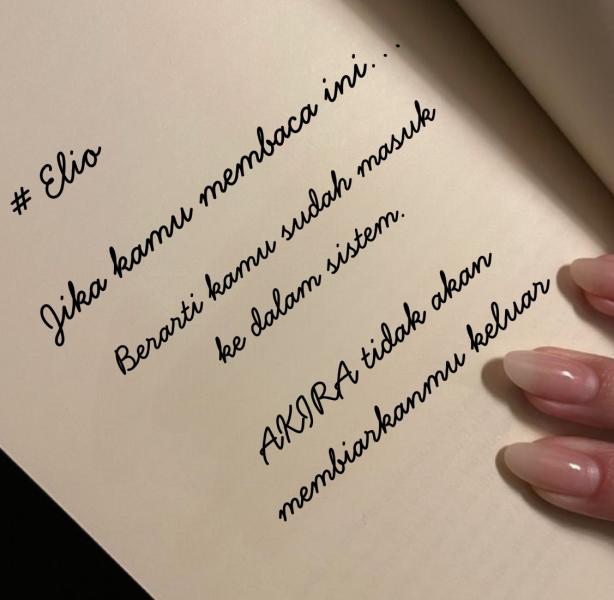 # Elio
Jika kamu membaca ini...
Berarti kamu sudah masuk
ke dalam sistem.
AKIRA tidak akan
membiarkanmu keluar